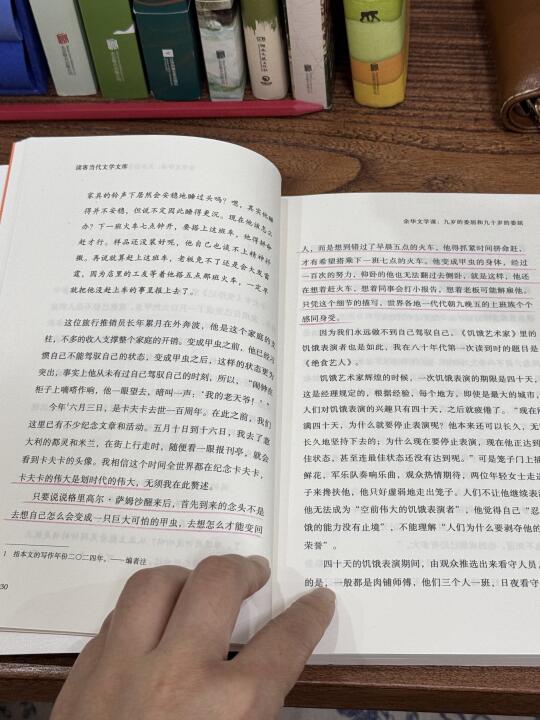 读客当代文学文库
家具的铃声下居然会安稳地睡过头吗？嗯，其实他睡
得并不安稳，但说不定因此睡得更沉。现在他该怎么
办？下一班火车七点钟开，要搭上这班车，他得拼命
赶才行。样品还没装好呢，他自己也谈不上精神抖
擞。再说就算赶上这班车，老板免不了还是会大发雷
霆，因为店里的工友等着他搭五点那班火车，一定早
就把他没赶上车的事呈报上去了。
这位旅行推销员长年累月在外奔波，他是这个家庭的支
柱，不多的收入支撑整个家庭的开销。变成甲虫之前，他已经习
惯自己不能驾驭自己的状态，变成甲虫之后，这样的状态更为
突出，事实上他从未有过自己驾驭自己的时刻，所以，“闹钟在
柜子上嘀嗒作响，他一眼望去，暗叫一声：‘我的老天爷！’”
今年¹六月三日，是卡夫卡去世一百周年。在此之前，我们
这里已有不少纪念文章和活动。五月十日到十六日，我去了意
大利的都灵和米兰，在街上行走时，随便看一眼报刊亭，就会
看到卡夫卡的头像。我相信这个时间全世界都在纪念卡夫卡，
卡夫卡的伟大是划时代的伟大，无须我在此赘述。
只要说说格里高尔·萨姆沙醒来后，首先到来的念头不是
去想自己怎么会变成一只巨大可怕的甲虫，去想怎么才能变回
1 指本文的写作年份二〇二四年。——编者注
30
余华文学课：九岁的委屈和九十岁的委屈
人，而是想到错过了早晨五点的火车，他得抓紧时间拼命赶，
才有希望搭乘下一班七点的火车。他变成甲虫的身体，经过
一百次的努力，仰卧的他也无法翻过去侧卧，就是这样，他还
在想着赶火车，想着同事会打小报告，想着老板可能解雇他。
只凭这个细节的描写，世界各地一代代朝九晚五的上班族个个
感同身受。
因为我们永远做不到自己驾驭自己，《饥饿艺术家》里的
饥饿表演者也是如此，我在八十年代第一次读到时的题目是
《绝食艺人》。
饥饿艺术家辉煌的时候，一次饥饿表演的期限是四十天，
这是经理规定的，根据经验，每个地方，即使是最大的城市，
人们对饥饿表演的兴趣只有四十天，之后就疲倦了。“现在刚
满四十天，为什么就要停止表演呢？他本来还可以长久，无限
长久地坚持下去的；为什么现在要停止表演，现在他正达到最
佳状态，甚至连最佳状态还没有达到呢。”可是笼子门上插
鲜花，军乐队奏响乐曲，观众热情期待，两位年轻女士走进
子来搀扶他，他只好虚弱地走出笼子。人们不让他继续表演
他无法成为“空前伟大的饥饿表演者”，他觉得自己“忍
饿的能力没有止境”，不能理解“人们为什么要剥夺他的
荣誉”。
四十天的饥饿表演期间，由观众推选出来看守人员，
的是，一般都是肉铺师傅，他们三个人一班，日夜看守